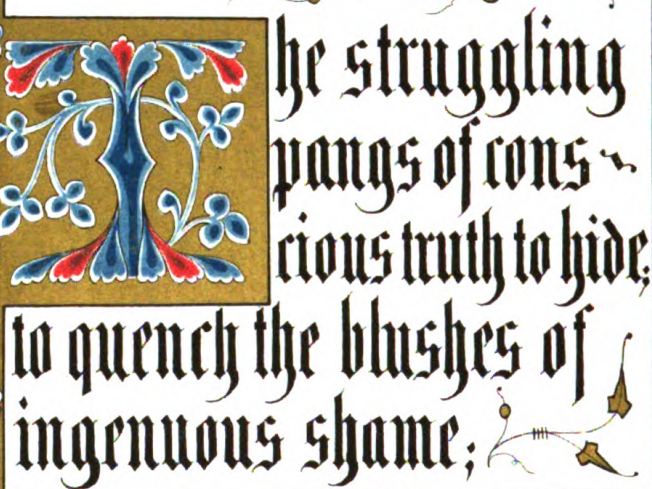 The struggling
pangs of cons~
cious truth to hide,
to quench the blushes of
ingenuous shame;